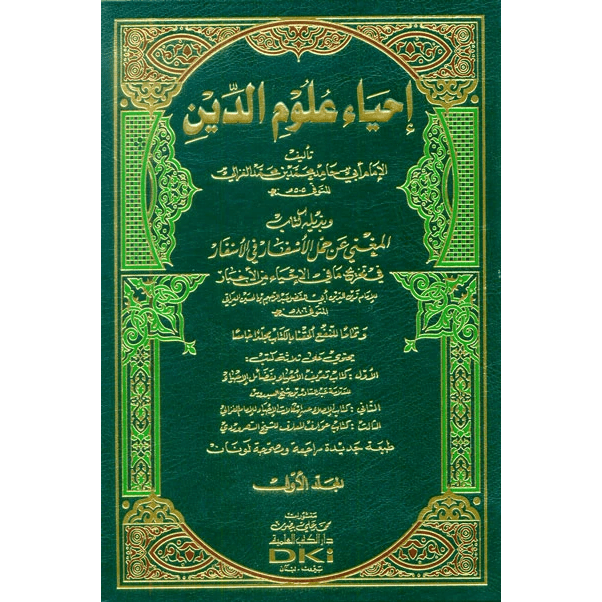 إحياء علوم الدين
تأليف
الإمام أبي حامد محمد بن محمد الغزالي
المتوفى ٥٠٥ هـ
وبذيله كتاب
المغني عن حمل الأسفار في الأسفار
في تخريج ما في الإحياء من الأخبار
للإمام زين الدين أبي الفضل عبد الرحيم بن الحسين العراقي
المتوفى ٨٠٦ هـ
وتماماً للنفع ألحقنا بالكتاب مجلداً خامساً
يحتوي على ثلاثة كتب:
الأول: كتاب تعريف الأحياء بفضائل الإحياء
الثاني: كتاب الإملاء عن إشكالات الإحياء للإمام الغزالي
الثالث: كتاب عوارف المعارف للشيخ السهروردي
طبعة جديدة مراجعة ومصححة
المجلد الأول
منشورات
محمد علي بيضون
دار الكتب العلمية
DKi
بيروت - لبنان